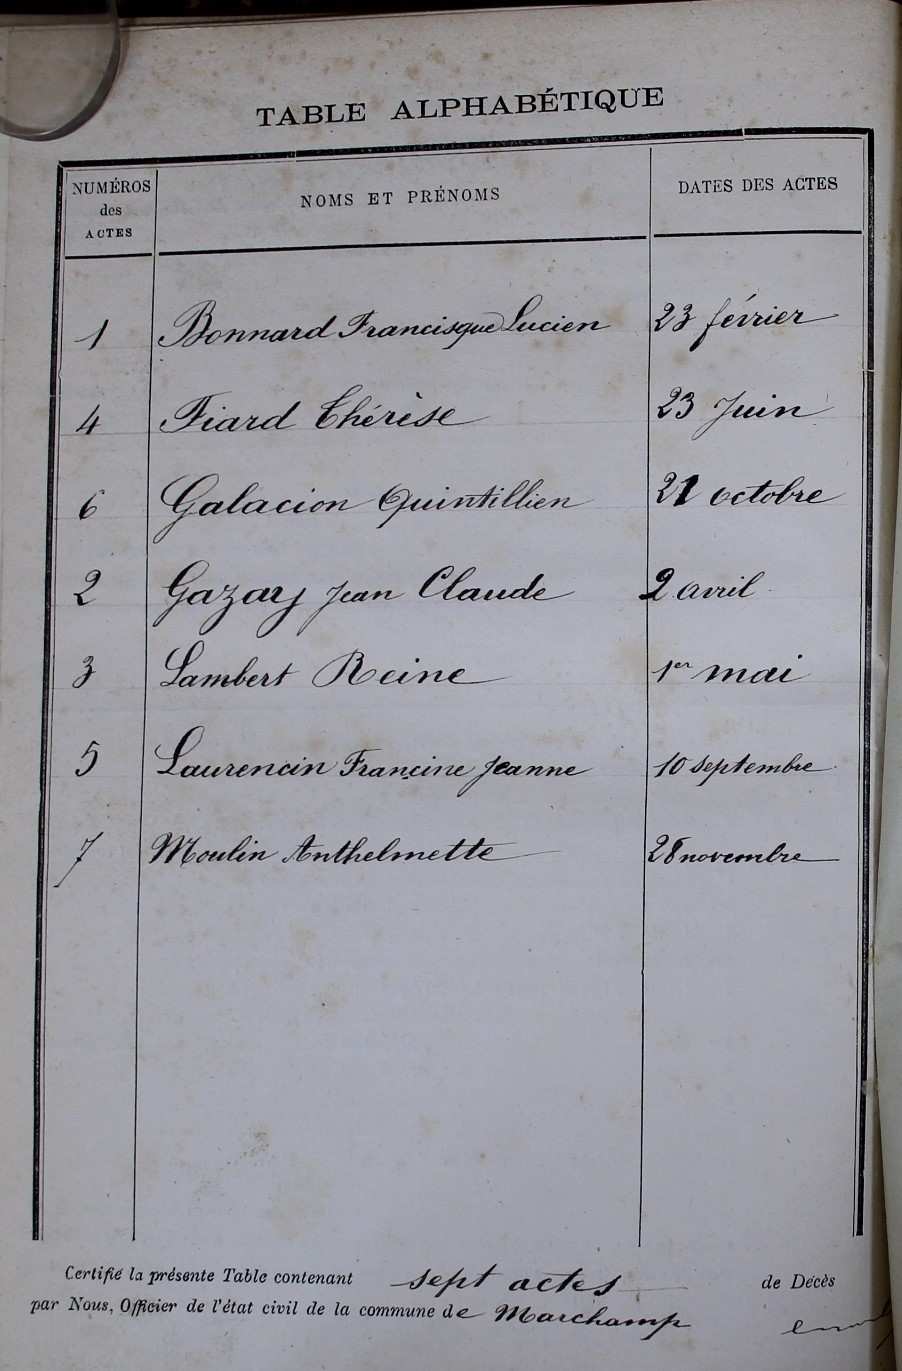 TABLE ALPHABÉTIQUE
NUMÉROS des ACTES NOMS ET PRÉNOMS DATES DES ACTES
1 Bonnard Francisque Lucien 23 février
4 Fiard Thérèse 23 Juin
6 Galacion Quintillien 21 octobre
2 Gazay Jean Claude 2 avril
3 Lambert Reine 1er mai
5 Laurencin Francine Jeanne 10 septembre
7 Moulin Anthelmette 28 novembre
Certifié la présente Table contenant sept actes de Décès
par Nous, Officier de l'état civil de la commune de Marchamp